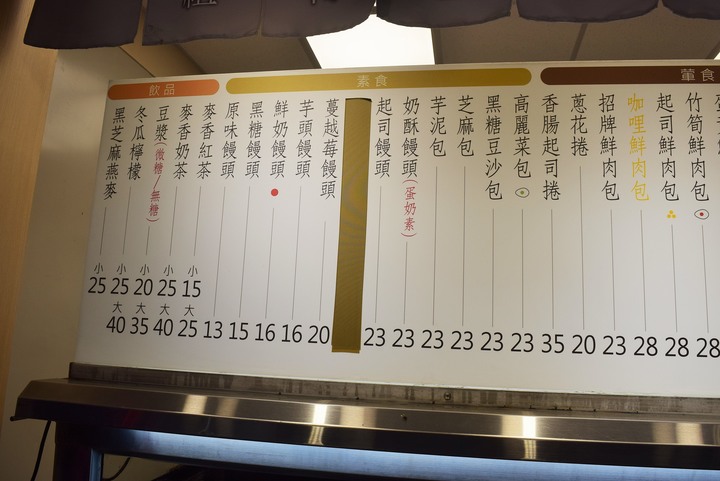 飲品
黑芝麻燕麥 小 25
冬瓜檸檬 小 25 大 40
豆漿(微糖/無糖) 小 20 大 35
麥香奶茶 小 25 大 40
麥香紅茶 小 15 大 25
素食
原味饅頭 13
黑糖饅頭 15
鮮奶饅頭 16
芋頭饅頭 16
蔓越莓饅頭 20
起司饅頭 23
奶酥饅頭(蛋奶素) 23
芋泥包 23
芝麻包 23
黑糖豆沙包 23
高麗菜包 23
葷食
香腸起司捲 35
蔥花捲 20
招牌鮮肉包 23
咖哩鮮肉包 28
起司鮮肉包 28
竹筍鮮肉包 28